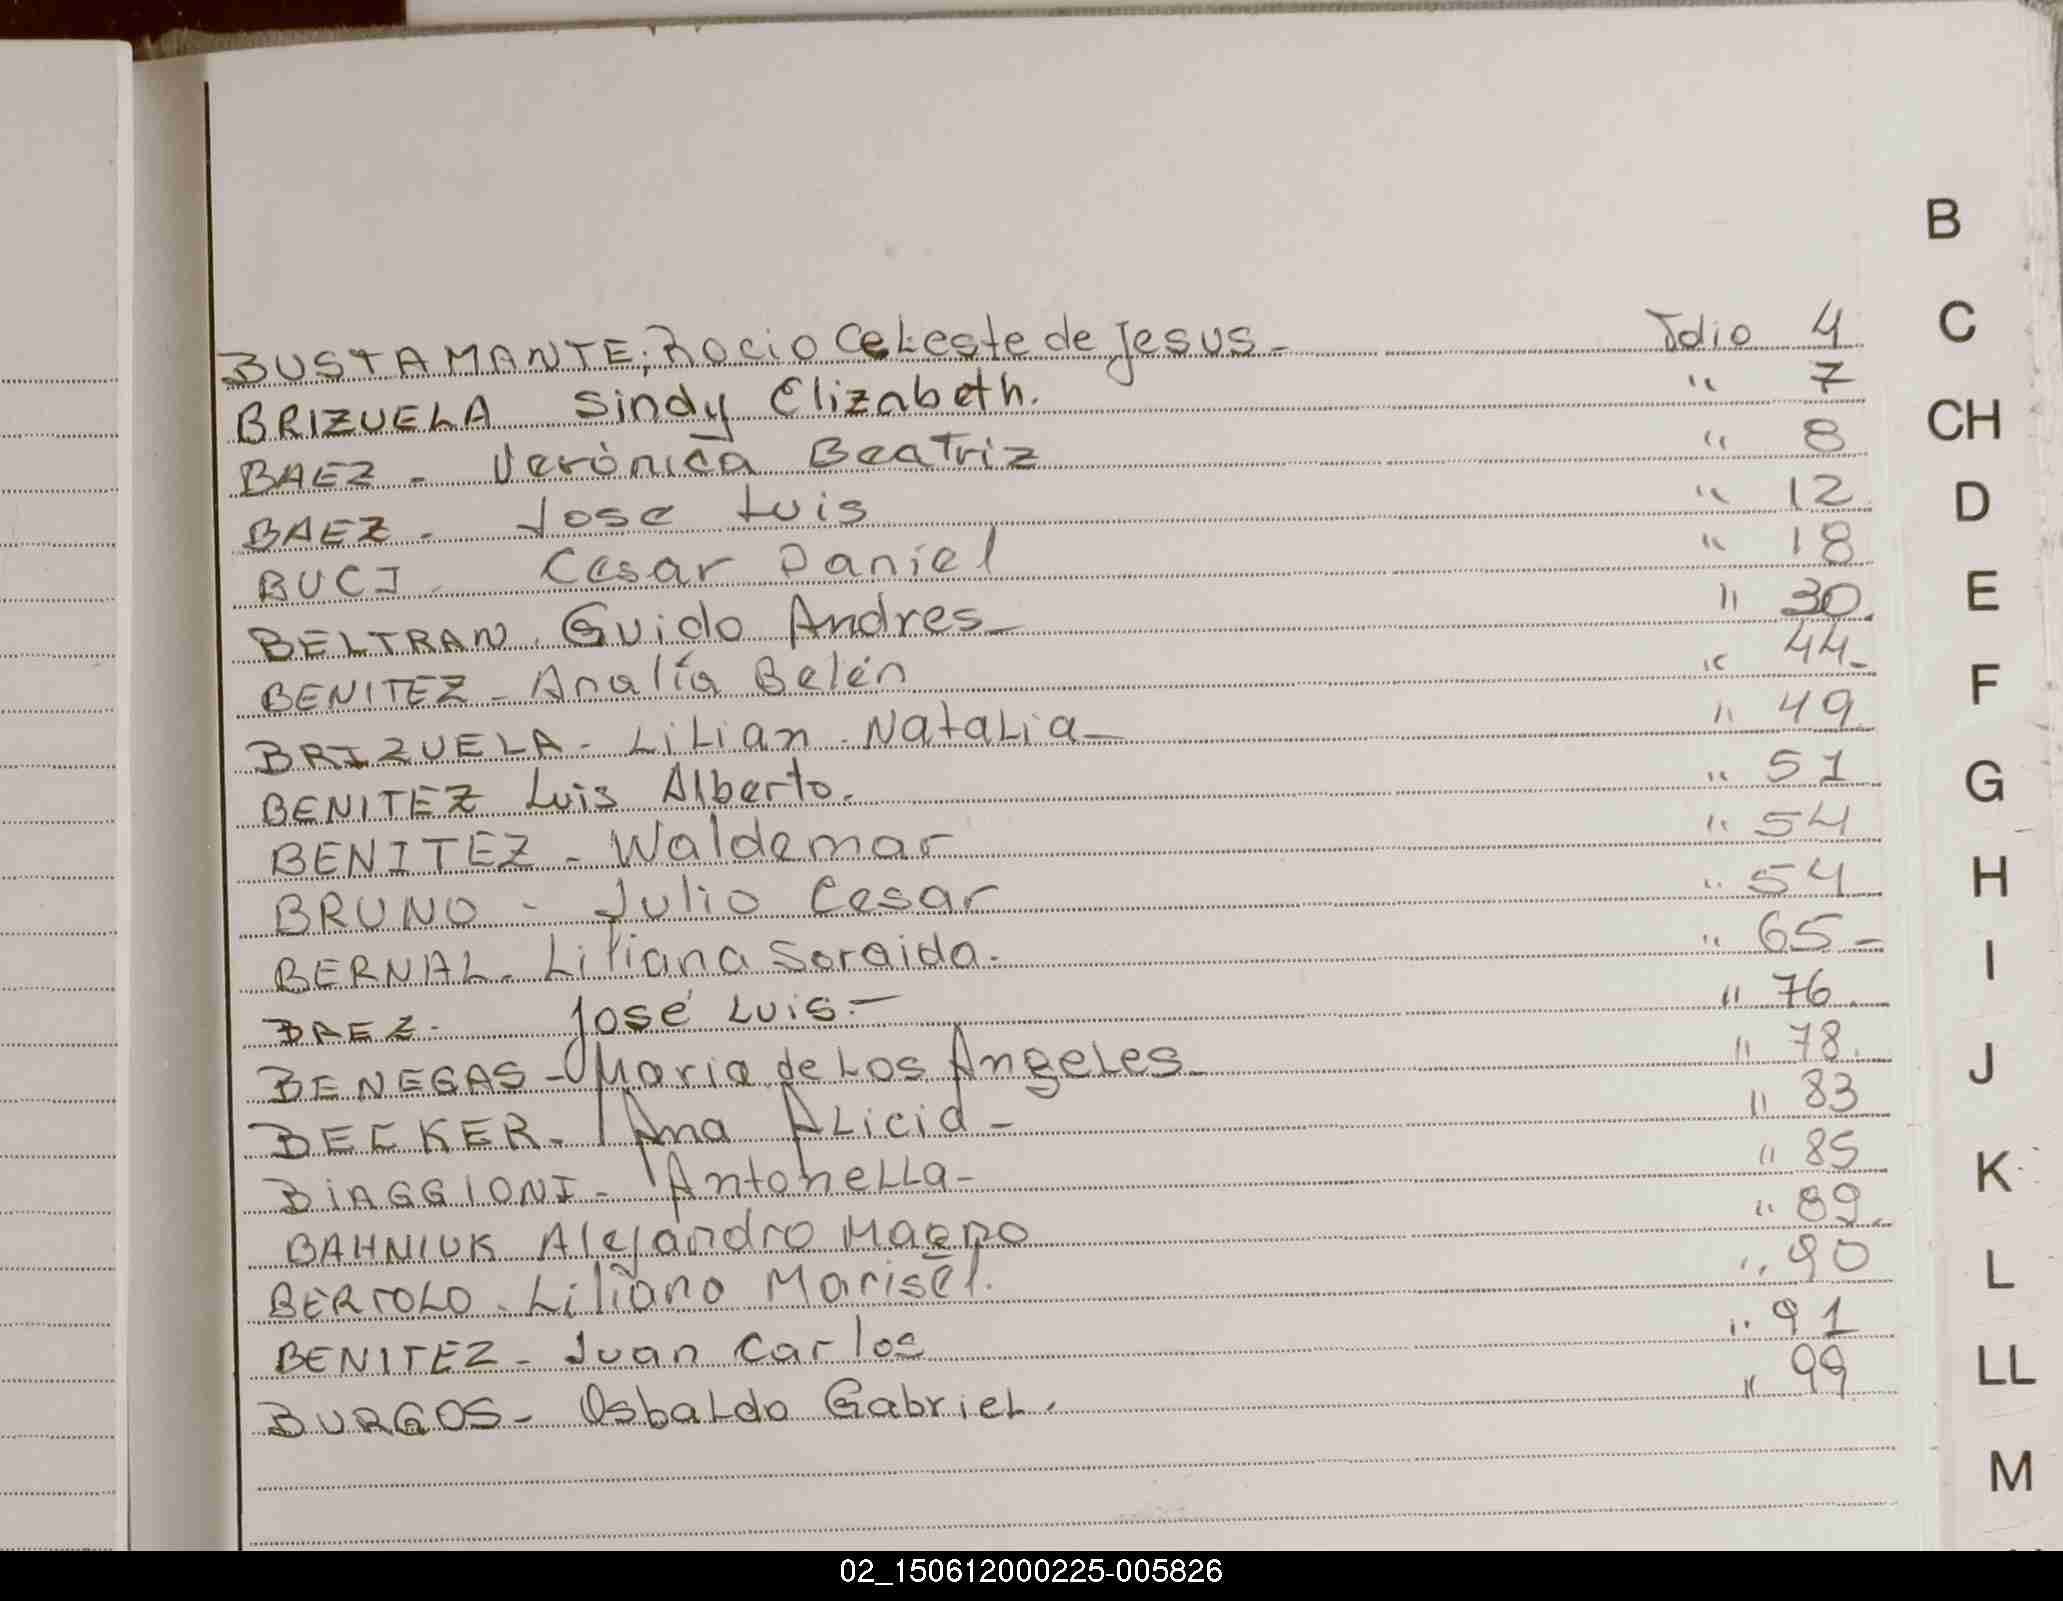 B
C
CH
D
E
F
G
H
I
J
K
L
LL
M
BUSTAMANTE; Rocio Celeste de Jesus - Fdio 4
BRIZUELA Sindy Elizabeth. " 7
BAEZ - Verónica Beatriz " 8
BAEZ - Jose Luis " 12
BUCI - Cesar Daniel " 18
BELTRAN - Guido Andres - " 30.
BENITEZ - Analía Belén " 44 -
BRIZUELA - Lilian - Natalia - " 49
BENITEZ Luis Alberto. " 51
BENITEZ - Waldemar " 54
BRUNO - Julio Cesar " 54
BERNAL - Liliana Soraida. " 65 -
BAEZ - José Luis. - " 76
BENEGAS - Maria de Los Angeles - " 78.
BECKER - Ana Alicia - " 83
BiAGGIONI - Antonella - " 85
BAHNIUK Alejandro Magno " 89.
BERTOLO - Liliana Marisel. " 90
BENITEZ - Juan Carlos " 91
BURGOS - Osbaldo Gabriel. " 99
02_150612000225-005826